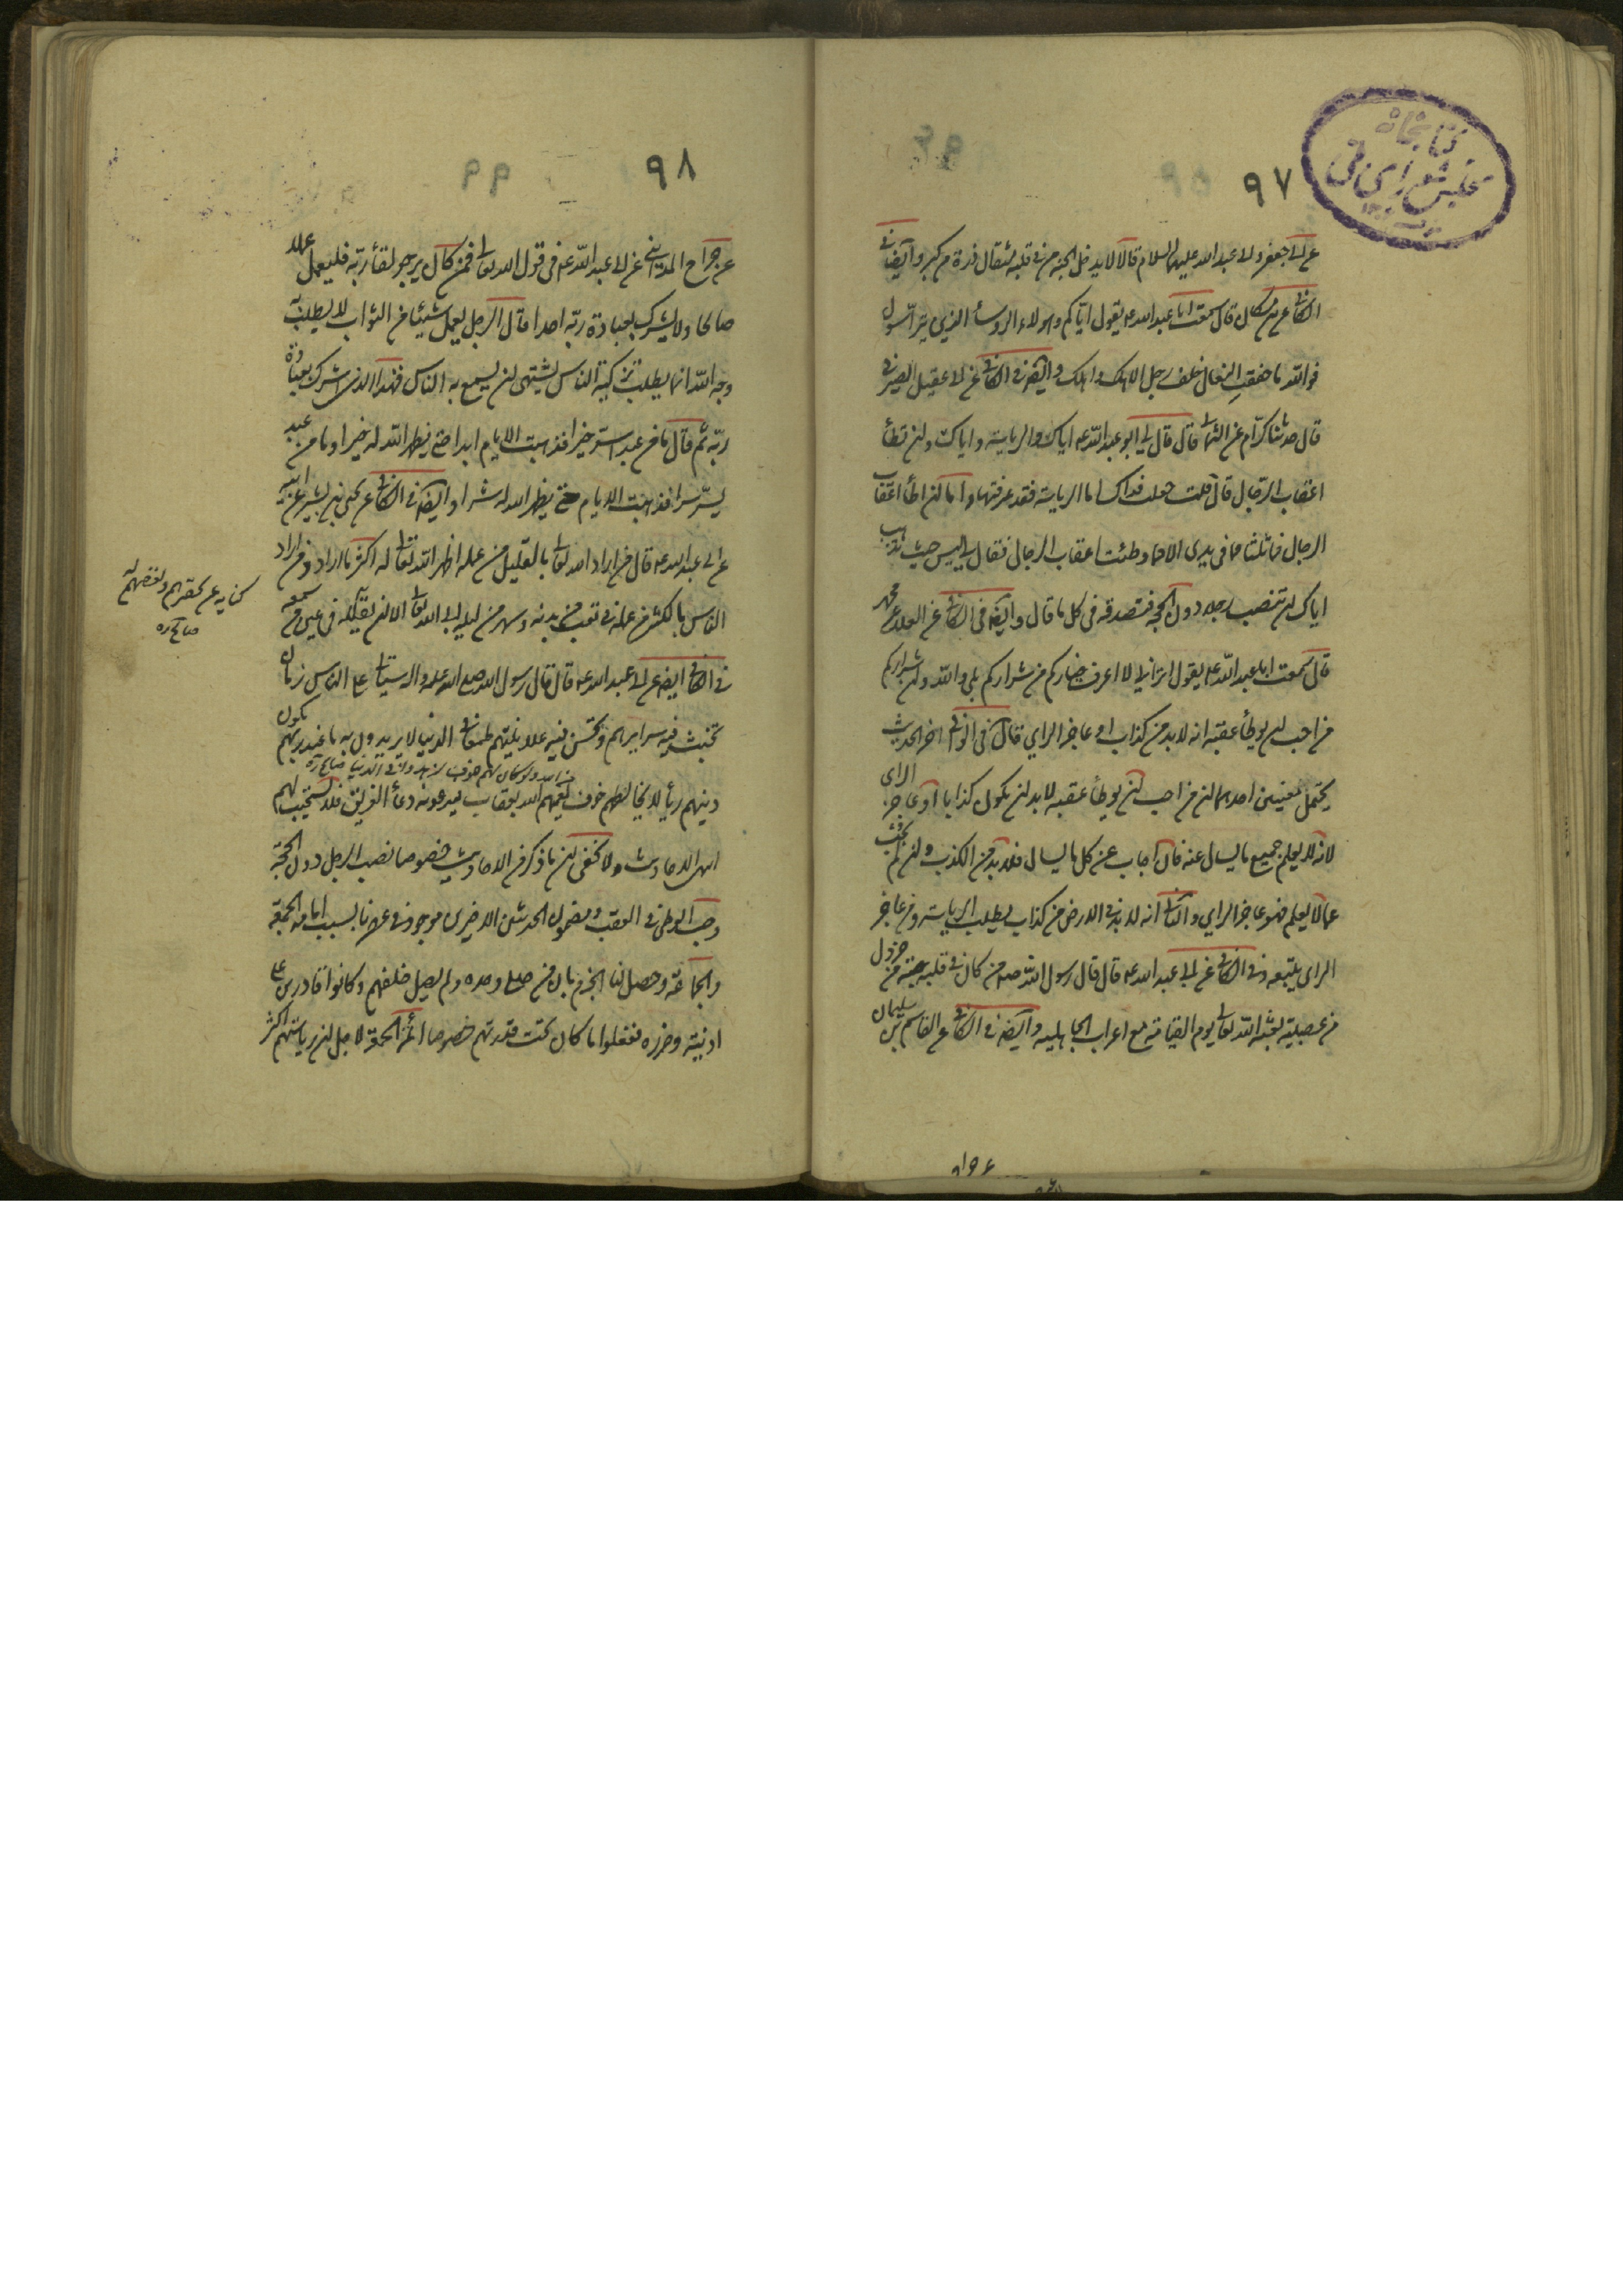 کتابخانه
مجلس شورای ملی
۹۷
عن ابی جعفر و ابی عبد الله علیهما السلام قالا لا یدخل الجنة من فی قلبه مثقال ذرة من کبر وایضا فی
الکافی عن مسکان قال سمعت ابا عبد الله ع یقول ایاکم وهولاء الروساء الذین یتراسون
فوالله ما خفقت النعال خلف رجل الا هلک واهلک وایضا فی الکافی عن ابی عقیل الصیرفی
قال حدثنا کرام عن الثمالی قال قال لی ابو عبد الله ع ایاک والریاسة وایاک وان تطأ
اعقاب الرجال قال قلت جعلت فداک اما الریاسة فقد عرفتها واما ان اطأ اعقاب
الرجال فما ثلثا ما فی یدی الا مما وطئت اعقاب الرجال فقال لی لیس حیث تذهب
ایاک ان تنصب رجلا دون الحجة فتصدقه فی کل ما قال وایضا فی الکافی عن العلا عن محمد
قال سمعت ابا عبد الله ع یقول اترانی لا اعرف خیارکم من شرارکم بلی والله وان شرارکم
من احب ان یوطأ عقبه انه لا بد من کذاب او عاجز الرای قال فی الوافی اخر الحدیث
یحتمل معنیین احدهما ان من احب ان یوطأ عقبه لا بد ان یکون کذابا او عاجز الرای
لانه لا یعلم جمیع ما یسال عنه فان اجاب عن کل ما یسال فلا بد من الکذب وان لم یجب
عما لا یعلم فهو عاجز الرای والثانی انه لا بد فی الارض من کذاب یطلب الریاسة ومن عاجز
الرای یتبعه وفی الکافی عن ابی عبد الله ع قال قال رسول الله ص من کان فی قلبه حبة من خردل
من عصبیة بعثه الله تعالی یوم القیامة مع اعراب الجاهلیة وایضا فی الکافی عن القاسم بن سلیمان
۹۸
عن جراح المداینی عن ابی عبد الله ع فی قول الله تعالی فمن کان یرجو لقاء ربه فلیعمل عملا
صالحا ولا یشرک بعبادة ربه احدا قال الرجل یعمل شیئا من الثواب لا یطلب به
وجه الله انما یطلب تزکیة الناس یشتهی ان یسمع به الناس فهذا الذی اشرک بعبادة
ربه ثم قال ما من عبد اسر خیرا فذهبت الایام ابدا حتی یظهر الله له خیرا وما من عبد
یسر شرا فذهبت الایام حتی یظهر الله له شرا وایضا فی الکافی عن یحیی بن بشیر عن ابیه
عن ابی عبد الله ع قال من اراد الله تعالی بالقلیل من عمله اظهر الله تعالی له اکثر مما اراد ومن اراد
الناس بالکثیر من عمله فی تعب من بدنه وسهر من لیله ابی الله تعالی الا ان یقلله فی عین من سمعه
فی الکافی ایضا عن ابی عبد الله ع قال قال رسول الله صلی الله علیه واله سیاتی علی الناس زمان
تخبث فیه سرایرهم وتحسن فیه علانیتهم طمعا فی الدنیا لا یریدون به ما عند ربهم یکون
دینهم ریاء لا یخالطهم خوف یعمهم الله بعقاب فیدعونه دعاء الغریق فلا یستجیب لهم
انتهی الاحادیث ولا یخفی ان ما ذکر فی الاحادیث خصوصا نصب الرجل دون الحجة
وحب الوطی فی العقب ومضمون الحدیثین الاخیرین موجود فی عهدنا بسبب امامة الجمعة
والجماعة وحصل لنا الجزم بان من صلی وحده ولم یصل خلفهم وکانوا قادرین علی
اذیته وضرره ففعلوا ما کان تحت قدرتهم خصوصا ائمة الجمعة لاجل ان ریاستهم اکثر
کنایه عن تحقرهم ونقصهم له
صالح ره